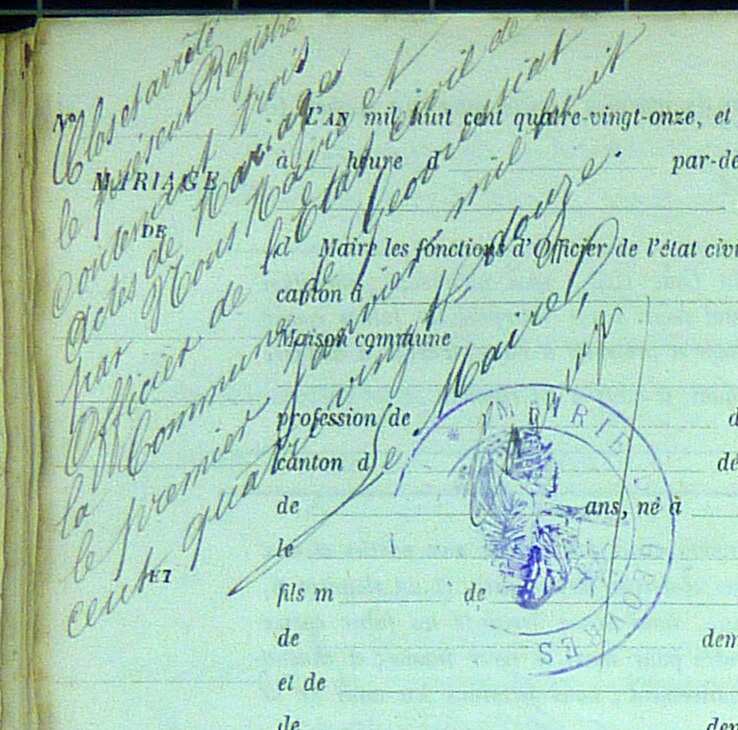 Clos et arrêté
le présent Registre
contenant trois
actes de Mariages
par Nous Maire et
Officier de l'Etat civil de
la Commune de Geovressiat
le premier Janvier mil huit
cent quatre vingt douze.
Le Maire,
No
MARIAGE
DE
ET
L'AN mil huit cent quatre-vingt-onze, et
à heure d par-de
d Maire les fonctions d'Officier de l'état civi
canton d
Maison commune
profession de d
canton d dé
de ans, né à
le
fils m de
de dem
et de
de dem
MAIRIE D GEOVRES S